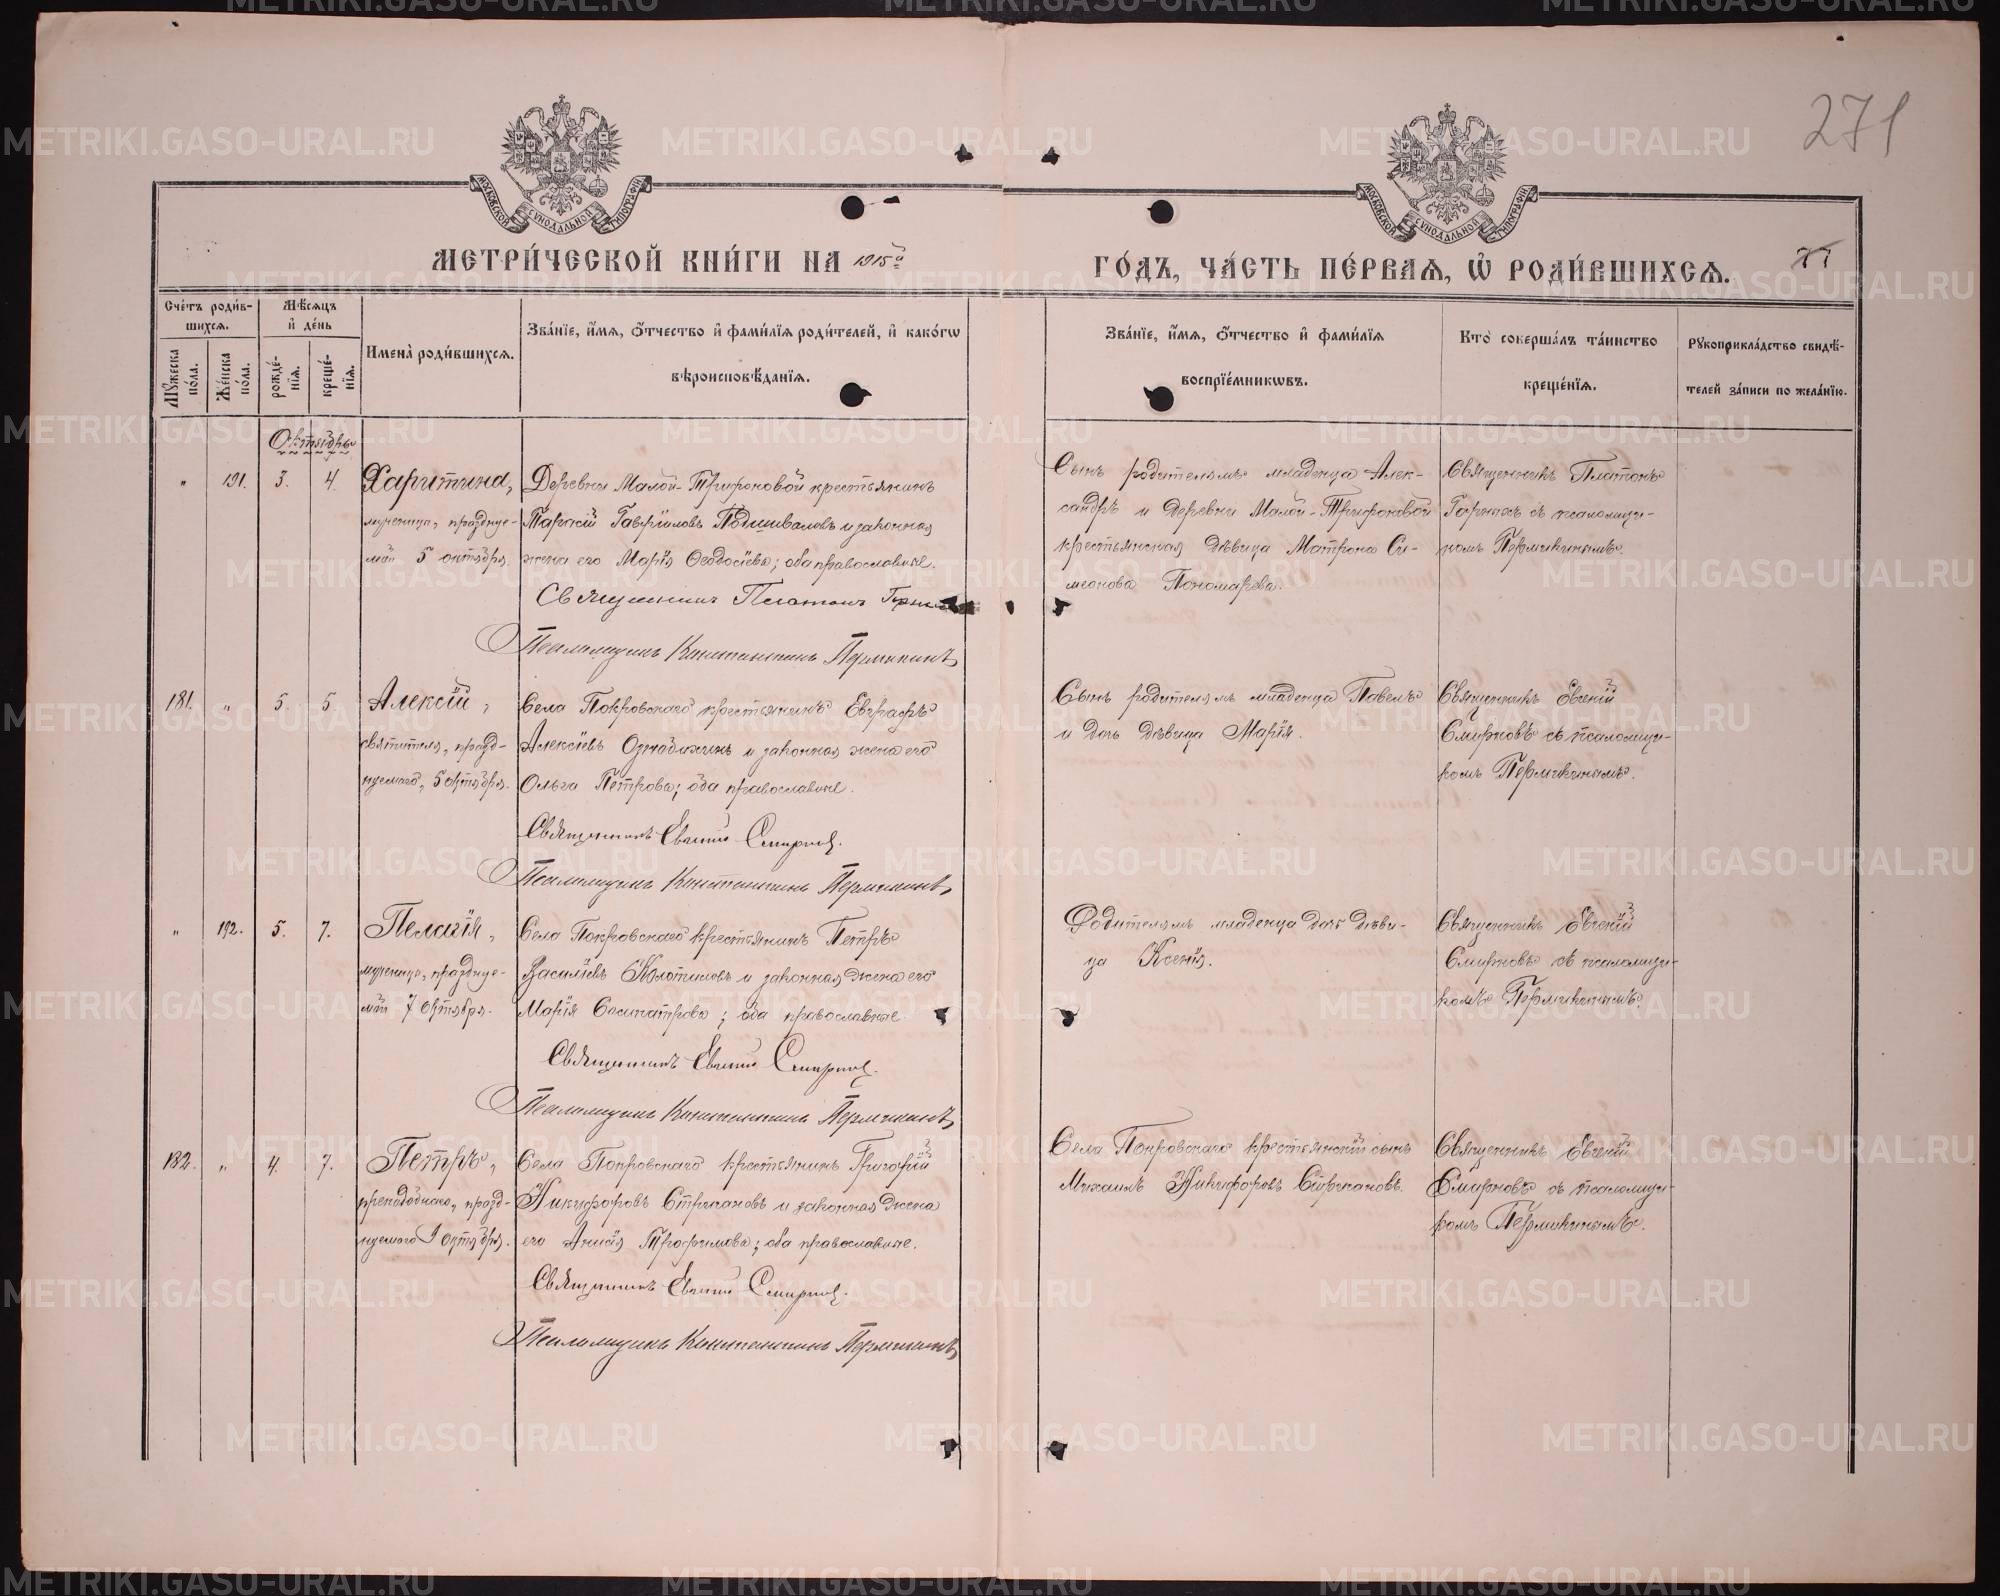 271
МОСКОВСКОЙ СУНОДАЛЬНОЙ ТИПОГРАФІИ
МОСКОВСКОЙ СУНОДАЛЬНОЙ ТИПОГРАФІИ
МЕТРИ́ЧЕСКОЙ КНИ́ГИ НА 1915й
ГО́ДЪ, ЧА́СТЬ ПЕ́РВАЯ, Ѡ҆ РОДИ́ВШИХСЯ.
Сче́тъ роди́вшихся.
Мꙋ́жеска по́ла.
Же́нска по́ла.
Мѣ́сяцъ и҆ де́нь
рожде́нїя.
креще́нїя.
Имена̀ роди́вшихся.
Зва́нїе, и҆́мя, ѻ҆́тчество и҆ фами́лїя роди́телей, и҆ како́гѡ
вѣроисповѣ́данїя.
Зва́нїе, и҆́мя, ѻ҆́тчество и҆ фами́лїя
воспрїе́мникѡвъ.
Кто̀ соверша́лъ та́инство
креще́нїя.
Рꙋкоприкла́дство свидѣ́-
телей за́писи по жела́нїю.
Октябрь
" 191. 3. 4.
Харитина,
мученица, праздуе-
мая 5 октября.
Деревни Малой-Трифоновой крестьянинъ
Тарасій Гавріиловъ Подшиваловъ и законная
жена его Марія Ѳеодосіева; оба православные.
Священникъ Платонъ Горныхъ
Псаломщикъ Константинъ Пермикинъ
Сынъ родителямъ младенца Алек-
сандръ и деревни Малой-Трифоновой
крестьянская дѣвица Матрона Си-
меонова Пономарева.
Священникъ Платонъ
Горныхъ съ псаломщи-
комъ Пермикинымъ.
181. " 5. 5.
Алексій,
святителя, празд-
нуемаго, 5 октября.
Села Покровскаго крестьянинъ Евграфъ
Алексіевъ Ознобихинъ и законная жена его
Ольга Петрова; оба православные.
Священникъ Евгеній Смирновъ.
Псаломщикъ Константинъ Пермикинъ
Сынъ родителямъ младенца Павелъ
и дочь дѣвица Марія.
Священникъ Евгеній
Смирновъ съ псаломщи-
комъ Пермикинымъ.
" 192. 5. 7.
Пелагія,
мученица, празднуе-
мая 7 октября.
Села Покровскаго крестьянинъ Петръ
Василіевъ Колотиловъ и законная жена его
Марія Сосипатрова; оба православные.
Священникъ Евгеній Смирновъ.
Псаломщикъ Константинъ Пермикинъ
Родителямъ младенца дочь дѣви-
ца Ксенія.
Священникъ Евгеній
Смирновъ съ псаломщи-
комъ Пермикинымъ.
182. " 4. 7.
Петръ,
преподобнаго, празд-
нуемаго 9 октября.
Села Покровскаго крестьянинъ Григорій
Никифоровъ Стригановъ и законная жена
его Анисія Трофимова; оба православные.
Священникъ Евгеній Смирновъ.
Псаломщикъ Константинъ Пермикинъ
Села Покровскаго крестьянскій сынъ
Михаилъ Никифоровъ Стригановъ.
Священникъ Евгеній
Смирновъ съ псаломщи-
комъ Пермикинымъ.
METRIKI.GASO-URAL.RU